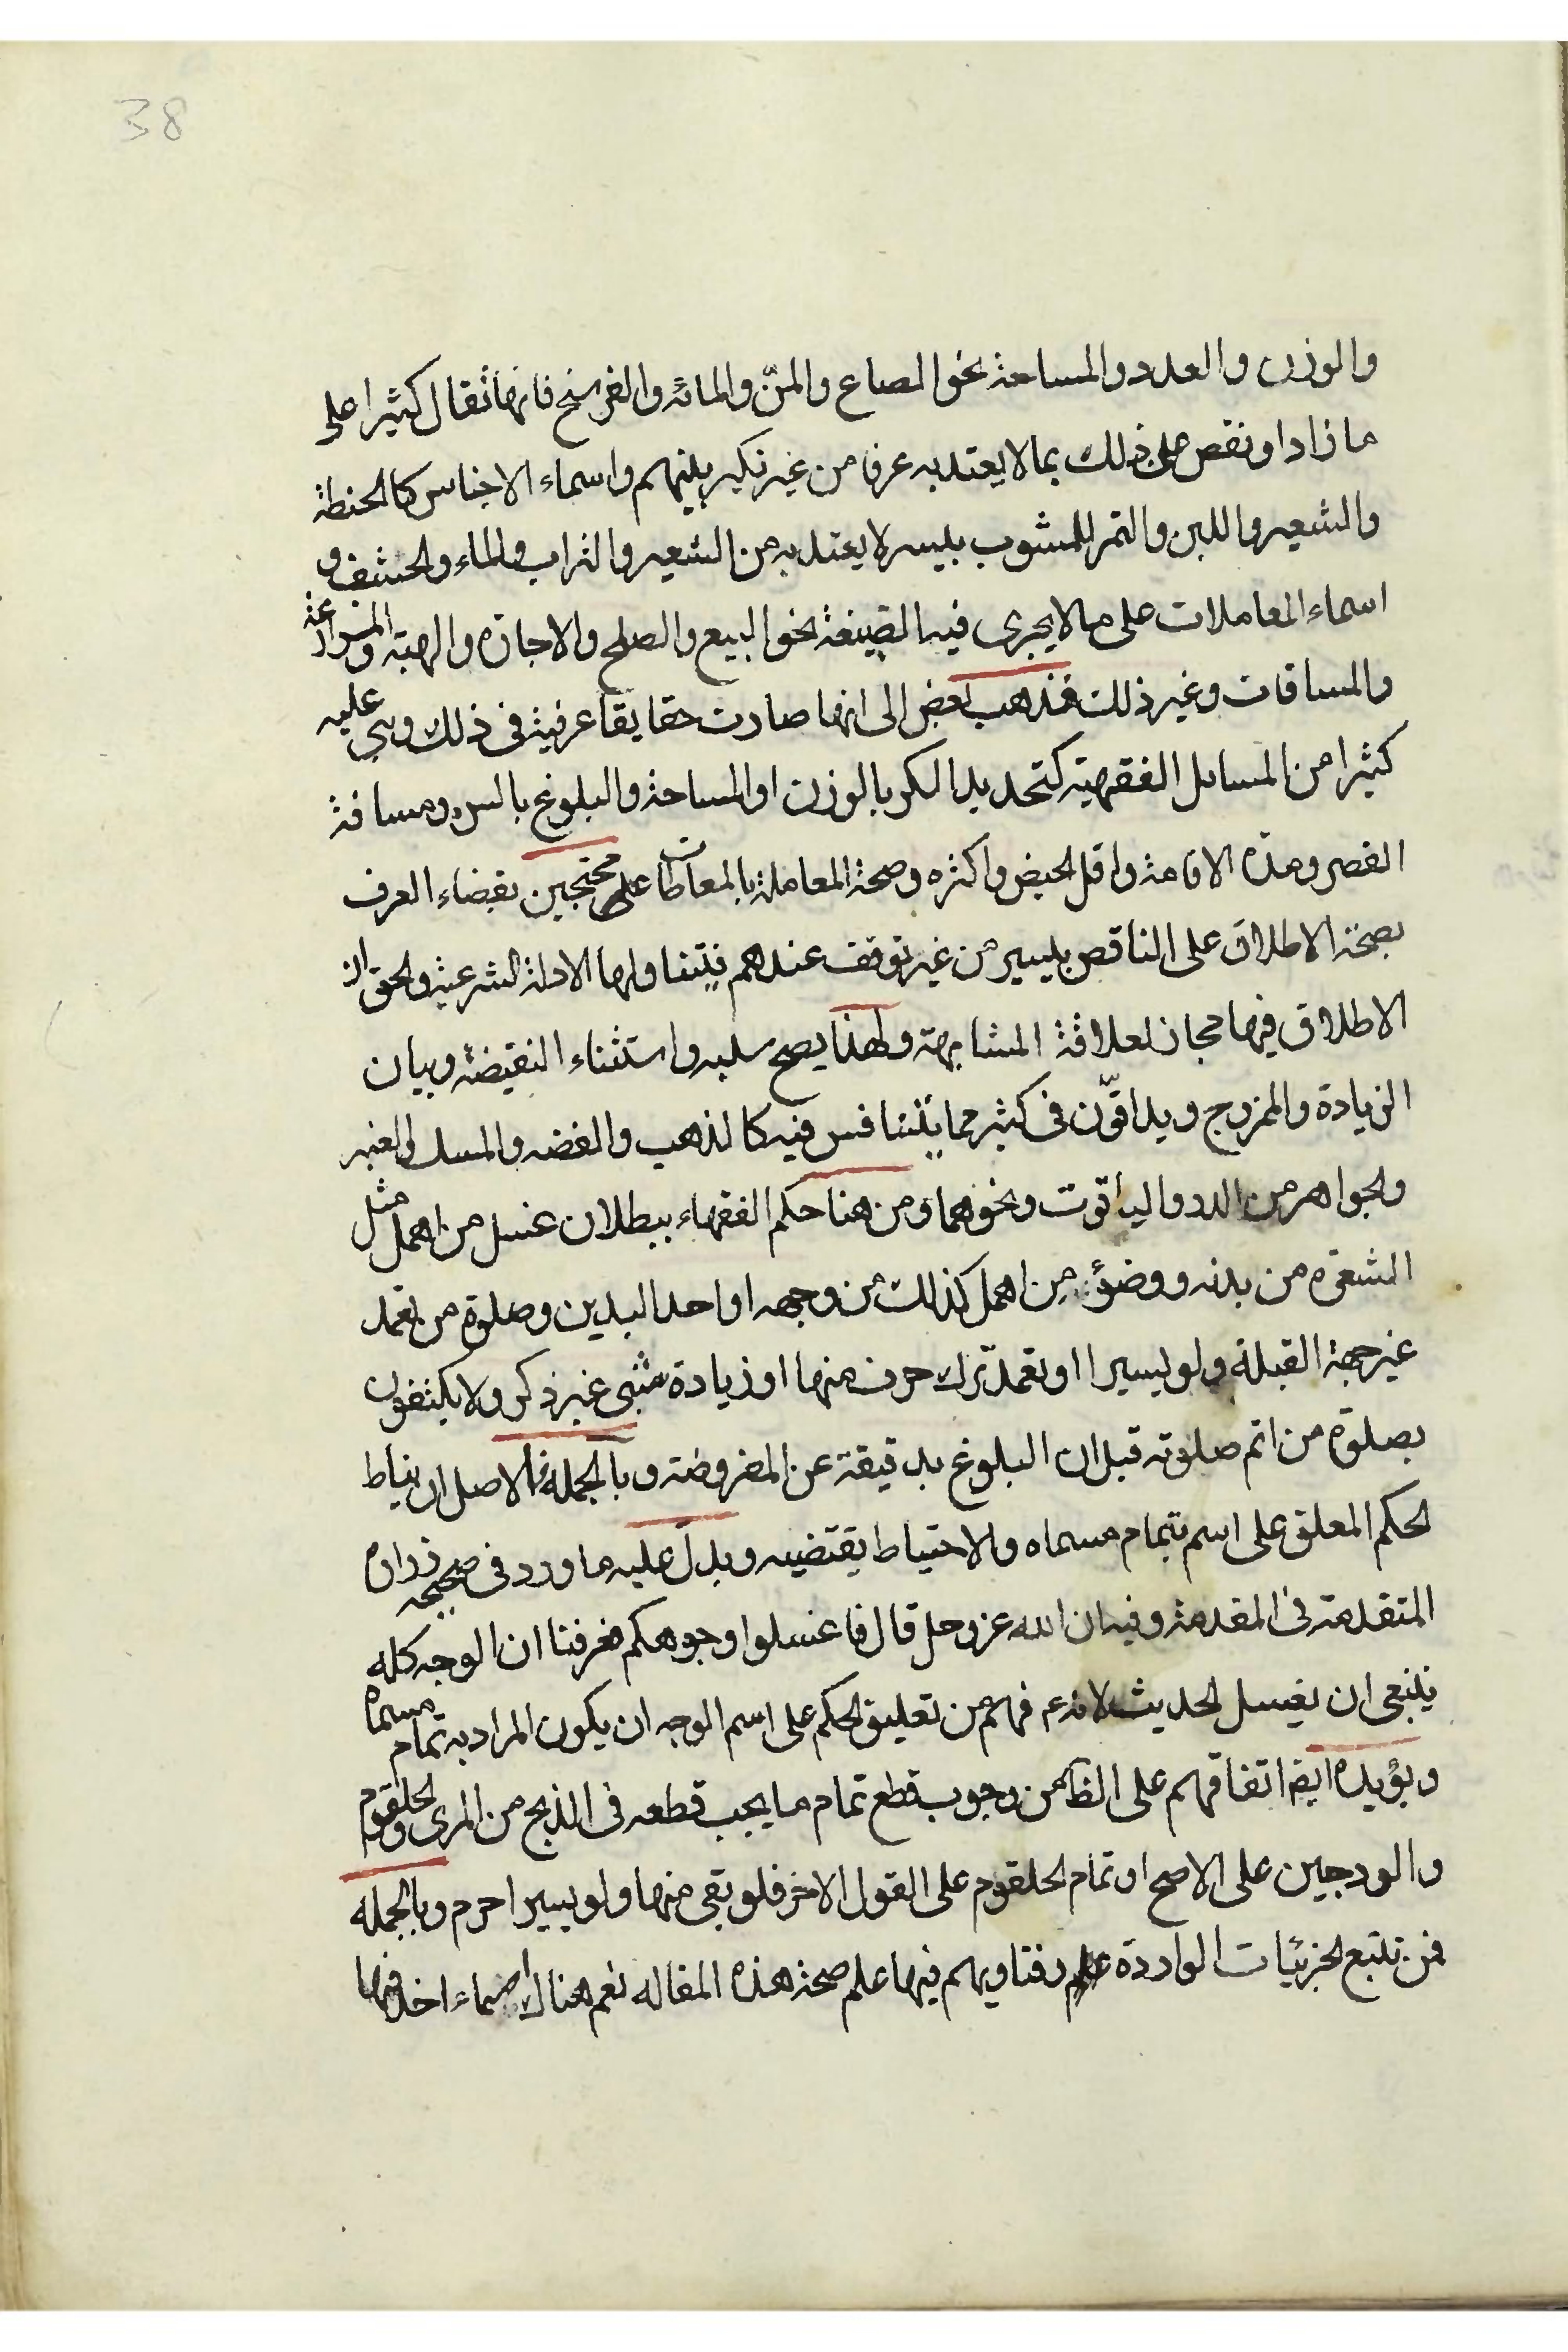 38
والوزن والعدد والمساحة نحو الصاع والمنّ والمائة والفرسخ فانها تقال كثيرا على
ما زاد او نقص على ذلك بما لا يعتد به عرفا من غير نكير بينهم واسماء الاجناس كالحنطة
والشعير واللبن والتمر للمشوب بيسير لا يعتد به من الشعير والتراب والماء والحشف و
اسماء المعاملات على ما لا يجرى فيه الصيغة نحو البيع والصلح والاجارة والهبة والمزارعة
والمساقات وغير ذلك فذهب بعض الى انها صارت حقايقا عرفية فى ذلك وبنى عليه
كثيرا من المسائل الفقهية كتحديد الكر بالوزن او المساحة والبلوغ بالسن ومسافة
القصر ومدة الاقامة واقل الحيض واكثره وصحة المعاملة بالمعاطات محتجين بقضاء العرف
بصحة الاطلاق على الناقص بيسير من غير توقف عندهم فيتناولها الادلة الشرعية والحق ان
الاطلاق فيها مجاز لعلاقة المشابهة ولهذا يصح سلبه واستثناء النقيضة وبيان
الزيادة والمزوج ويداقّون فى كثير مما يتنافس فيه كالذهب والفضه والمسك والعنبر
والجواهر من الدر والياقوت ونحوهما ومن هنا حكم الفقهاء ببطلان غسل من اهمل مثل
الشعرة من بدنه ووضوء من اهمل كذلك من وجهه او احد اليدين وصلوة من تعمد
غير جهة القبلة ولو يسيرا او تعمد ترك حرف منها او زيادة شئ غير ذكر ولا يكتفون
بصلوة من اتم صلوته قبل ان البلوغ بدقيقة عن المفروضة وبالجملة فالاصل ان يناط
الحكم المعلق على اسم بتمام مسماه والاحتياط يقتضيه ويدل عليه ما ورد فى صحيحة زرارة
المتقدمة فى المقدمة وفيه ان الله عز وجل قال فاغسلوا وجوهكم فعرفنا ان الوجه كله
ينبغى ان يغسل الحديث لانه ع فهم من تعليق الحكم على اسم الوجه ان يكون المراد به تمام مسماه
ويؤيده ايضا اتفاقهم على الظاهر من وجوب قطع تمام ما يجب قطعه فى الذبح من المرى والحلقوم
والودجين على الاصح او تمام الحلقوم على القول الاخر فلو بقى منها ولو يسيرا حرم وبالجملة
فمن تتبع الجزئيات الواردة وفتاويهم فيها علم صحة هذه المقاله نعم هناك اسماء اخذ فيها